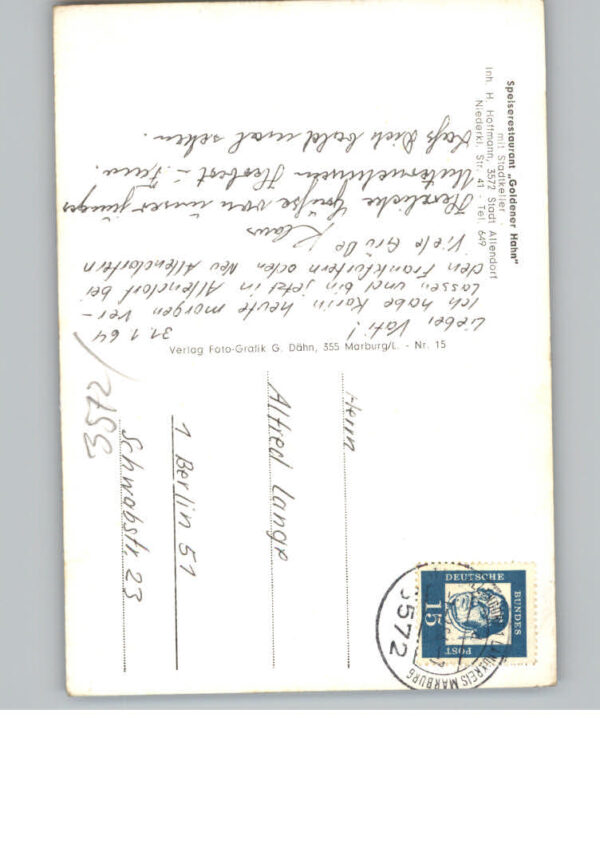 Speiserestaurant „Goldener Hahn"
mit Stadtkeller
Inh. H. Hoffmann, 3572 Stadt Allendorf
Niederkl. Str. 41 - Tel. 649
31.1.64
Lieber Vati!
Ich habe Karin heute morgen ver-
lassen und bin jetzt in Allendorf bei
den Frankfurtern oder Neu Allendorfern
Viele Grüße
Klaus
Herzliche Grüße von unser junges
Unternehmen Herbert -
Laß Dich bald mal sehen.
Verlag Foto-Grafik G. Dähn, 355 Marburg/L. - Nr. 15
Herrn
Alfred Lange
1 Berlin 51
Schwabstr. 23
3572/
DEUTSCHE
BUNDES
POST
15
3572
LANDKREIS MARBURG